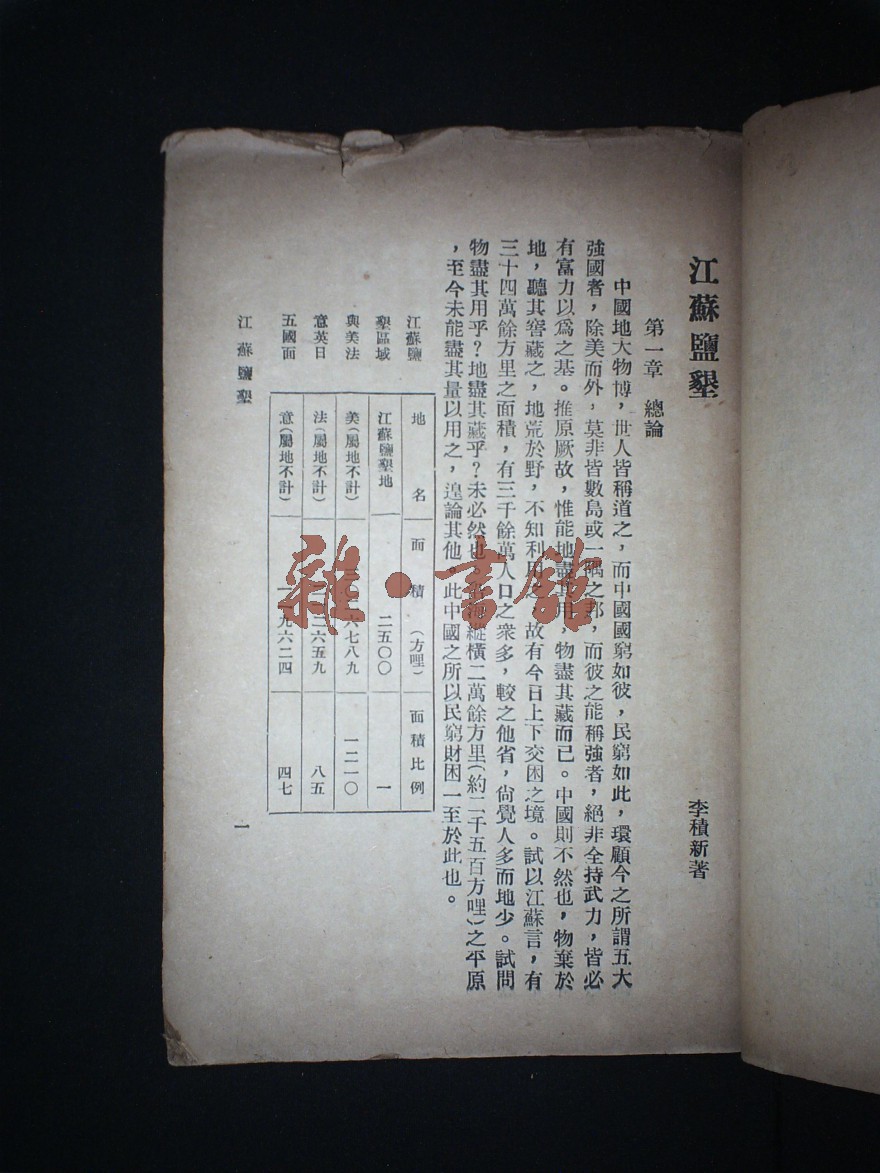 江蘇鹽墾
李積新著
第一章　總論
中國地大物博，世人皆稱道之，而中國國窮如彼，民窮如此，環顧今之所謂五大
強國者，除美而外，莫非皆數島或一隅之邦，而彼之能稱強者，絕非全持武力，皆必
有富力以爲之基。推原厥故，惟能地盡其用，物盡其藏而已。中國則不然也，物棄於
地，聽其窖藏之，地荒於野，不知利用，故有今日上下交困之境。試以江蘇言，有
三十四萬餘方里之面積，有三千餘萬人口之衆多，較之他省，尙覺人多而地少。試問
物盡其用乎？地盡其藏乎？未必然也，海縱橫二萬餘方里（約二千五百方哩）之平原
，至今未能盡其量以用之，遑論其他。此中國之所以民窮財困一至於此也。
江蘇鹽
墾區域
與美法
意英日
五國面
地名　面積（方哩）　面積比例
江蘇鹽墾地　二五〇〇　一
美（屬地不計）　六七八九　一二一〇
法（屬地不計）　二六五九　八五
意（屬地不計）　一一九六二四　四七
江蘇鹽墾
一
雜·書館